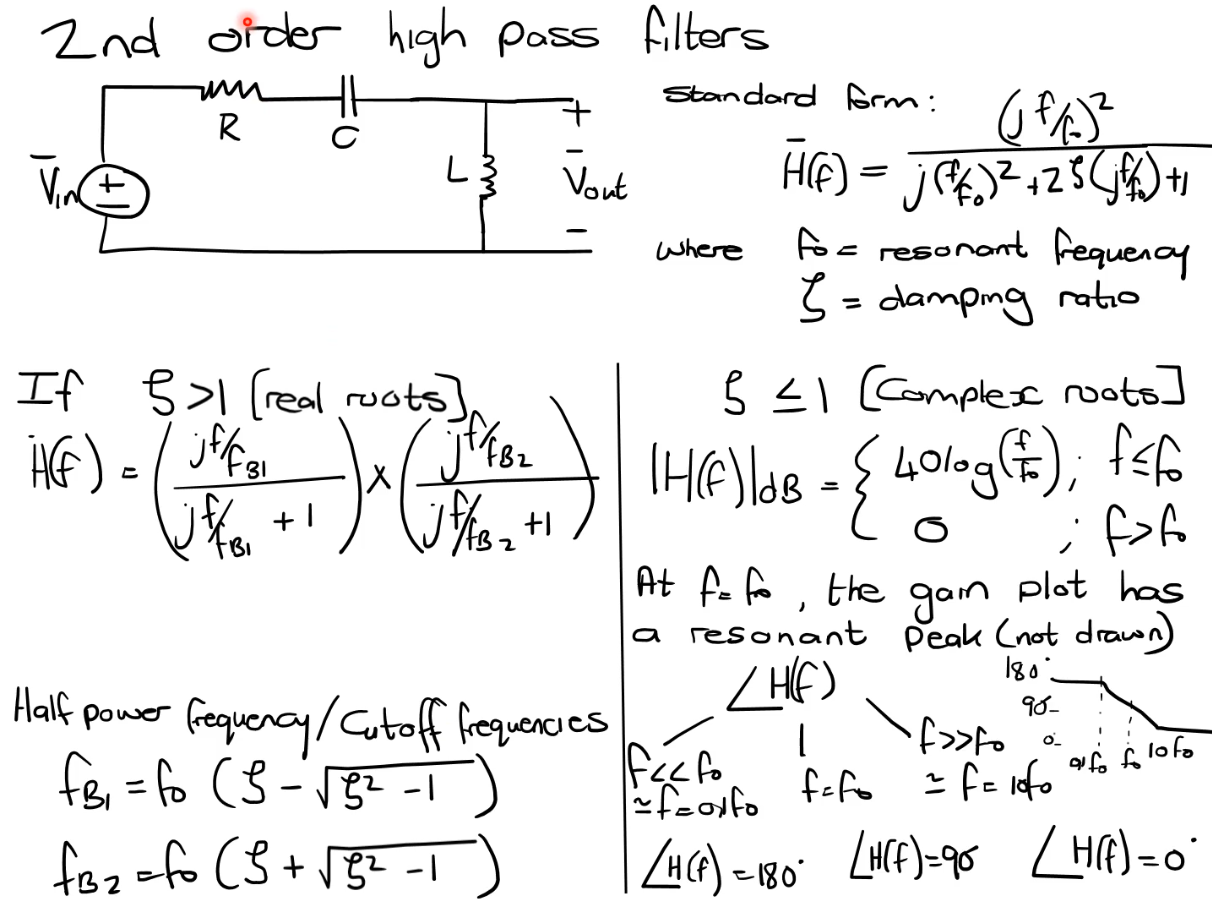 2nd order high pass filters
R
C
L
V̄in
+
-
+
V̄out
-
Standard form:
H̄(f) = (j f/f₀)² / j(f/f₀)² + 2ζ(j f/f₀) + 1
where f₀ = resonant frequency
ζ = damping ratio
If ζ > 1 [real roots]
H(f) = (j f/fB1 / j f/fB1 + 1) × (j f/fB2 / j f/fB2 + 1)
Half power frequency/Cutoff frequencies
fB1 = f₀ (ζ - √ζ² - 1)
fB2 = f₀ (ζ + √ζ² - 1)
ζ ≤ 1 [Complex roots]
|H(f)|dB = { 40log(f/f₀) ; f ≤ f₀
0 ; f > f₀
At f = f₀, the gain plot has
a resonant peak (not drawn)
∠H(f)
f << f₀
≃ f = 0.1f₀
f = f₀
f >> f₀
≃ f = 10f₀
∠H(f) = 180°
∠H(f) = 90°
∠H(f) = 0°
180°
90-
0-
0.1f₀ f₀ 10f₀